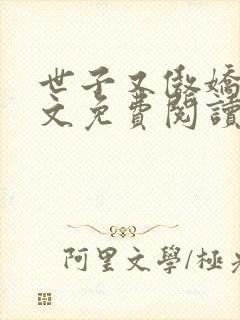 世子又傲嬌
文免費閱讀
阿里文學/極光